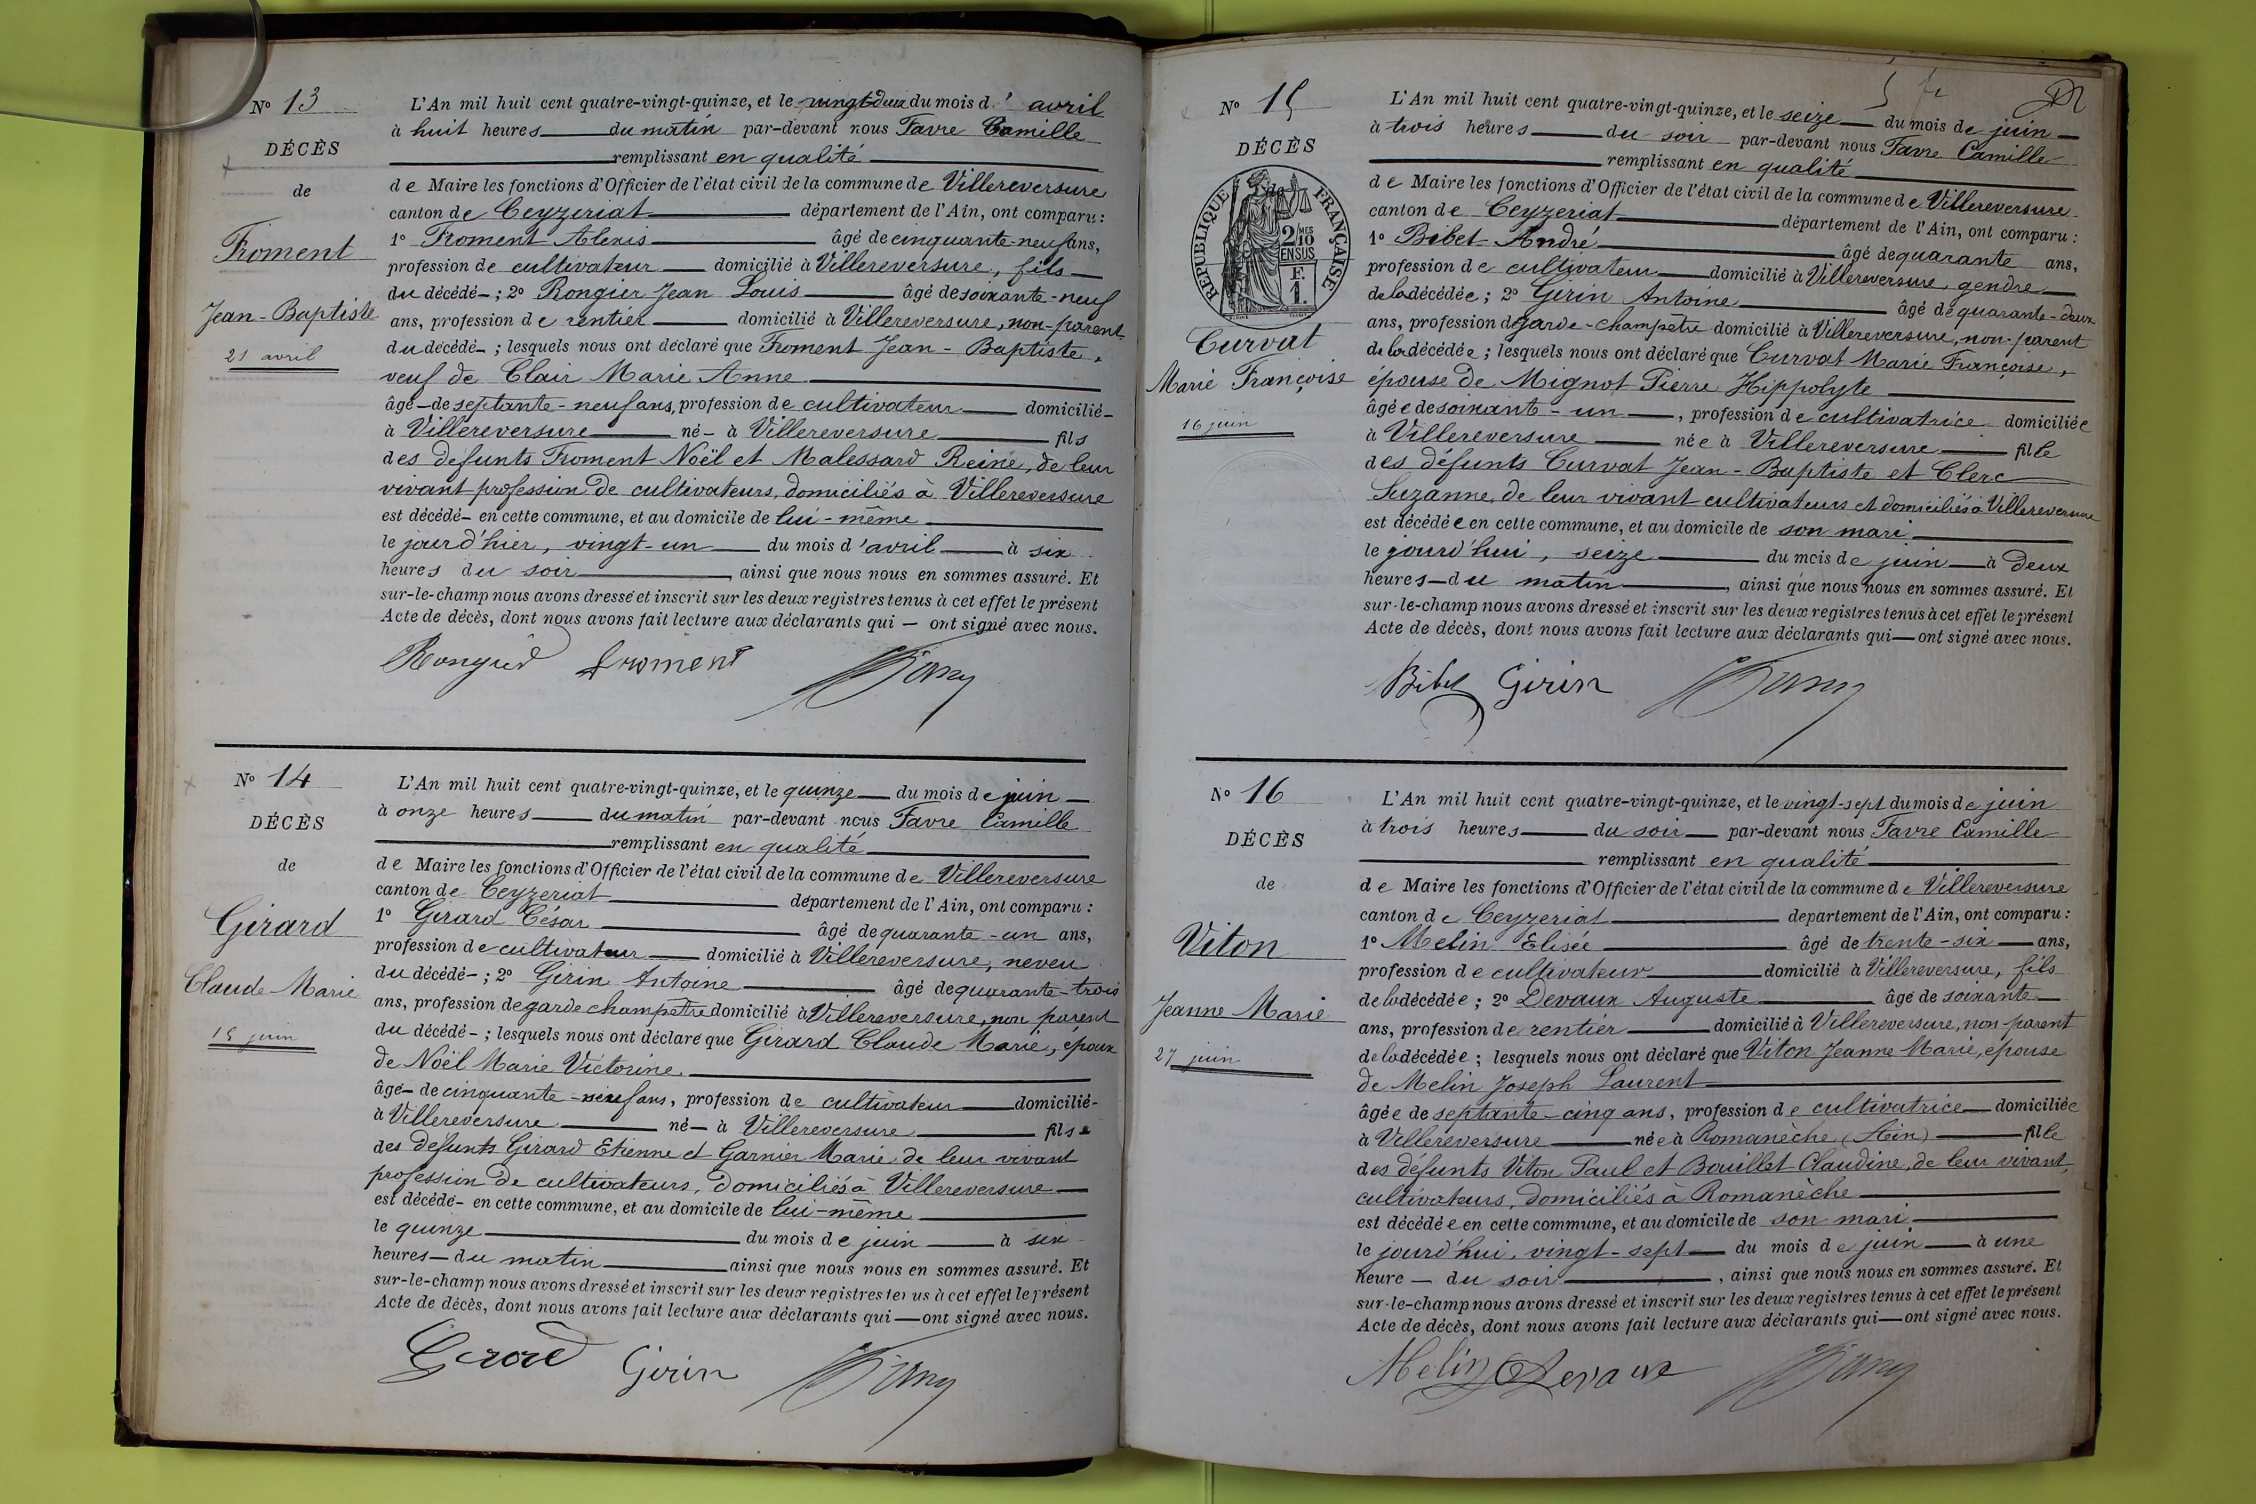 N° 13
DÉCÈS
de
Froment
Jean-Baptiste
21 avril
L'An mil huit cent quatre-vingt-quinze, et le vingt-deux du mois d' avril
à huit heures du matin par-devant nous Favre Camille
remplissant en qualité
de Maire les fonctions d'Officier de l'état civil de la commune de Villereversure
canton de Ceyzeriat département de l'Ain, ont comparu :
1° Froment Alexis âgé de cinquante-neuf ans,
profession de cultivateur domicilié à Villereversure, fils
du décédé ; 2° Rongier Jean Louis âgé de soixante-neuf
ans, profession de rentier domicilié à Villereversure, non-parent
du décédé ; lesquels nous ont déclaré que Froment Jean-Baptiste,
veuf de Clair Marie Anne
âgé de septante-neuf ans, profession de cultivateur domicilié
à Villereversure né à Villereversure fils
des défunts Froment Noël et Malessard Reine, de leur
vivant profession de cultivateurs, domiciliés à Villereversure
est décédé en cette commune, et au domicile de lui-même
le jour d'hier, vingt-un du mois d'avril à six
heures du soir ainsi que nous nous en sommes assuré. Et
sur-le-champ nous avons dressé et inscrit sur les deux registres tenus à cet effet le présent
Acte de décès, dont nous avons fait lecture aux déclarants qui — ont signé avec nous.
Froment
N° 14
DÉCÈS
de
Girard
Claude Marie
15 juin
L'An mil huit cent quatre-vingt-quinze, et le quinze du mois de juin
à onze heures du matin par-devant nous Favre Camille
remplissant en qualité
de Maire les fonctions d'Officier de l'état civil de la commune de Villereversure
canton de Ceyzeriat département de l'Ain, ont comparu :
1° Girard César âgé de quarante-un ans,
profession de cultivateur domicilié à Villereversure, neveu
du décédé ; 2° Girin Antoine âgé de quarante-trois
ans, profession de garde champêtre domicilié à Villereversure, non parent
du décédé ; lesquels nous ont déclaré que Girard Claude Marie, époux
de Noël Marie Victorine.
âgé de cinquante-neuf ans, profession de cultivateur domicilié
à Villereversure né à Villereversure fils
des défunts Girard Etienne et Garnier Marie, de leur vivant
profession de cultivateurs, domiciliés à Villereversure
est décédé en cette commune, et au domicile de lui-même
le quinze du mois de juin à six
heures du matin ainsi que nous nous en sommes assuré. Et
sur-le-champ nous avons dressé et inscrit sur les deux registres tenus à cet effet le présent
Acte de décès, dont nous avons fait lecture aux déclarants qui — ont signé avec nous.
Girard Girin
N° 15
DÉCÈS
de
RÉPUBLIQUE FRANÇAISE
2/10
EN SUS
F.
1.
Curvat
Marie Françoise
16 juin
L'An mil huit cent quatre-vingt-quinze, et le seize du mois de juin
à trois heures du soir par-devant nous Favre Camille
remplissant en qualité
de Maire les fonctions d'Officier de l'état civil de la commune de Villereversure
canton de Ceyzeriat département de l'Ain, ont comparu :
1° Bibet André âgé de quarante ans,
profession de cultivateur domicilié à Villereversure, gendre
de la décédée ; 2° Girin Antoine âgé de quarante-deux
ans, profession de garde-champêtre domicilié à Villereversure, non-parent
de la décédée ; lesquels nous ont déclaré que Curvat Marie Françoise,
épouse de Mignot Pierre Hippolyte
âgée de soixante-un , profession de cultivatrice domiciliée
à Villereversure née à Villereversure fille
des défunts Curvat Jean-Baptiste et Clerc
Suzanne, de leur vivant cultivateurs et domiciliés à Villereversure
est décédée en cette commune, et au domicile de son mari
le jourd'hui, seize du mois de juin à deux
heures du matin , ainsi que nous nous en sommes assuré. Et
sur-le-champ nous avons dressé et inscrit sur les deux registres tenus à cet effet le présent
Acte de décès, dont nous avons fait lecture aux déclarants qui — ont signé avec nous.
Bibet Girin
N° 16
DÉCÈS
de
Viton
Jeanne Marie
27 juin
L'An mil huit cent quatre-vingt-quinze, et le vingt-sept du mois de juin
à trois heures du soir par-devant nous Favre Camille
remplissant en qualité
de Maire les fonctions d'Officier de l'état civil de la commune de Villereversure
canton de Ceyzeriat département de l'Ain, ont comparu :
1° Melin Elisée âgé de trente-six ans,
profession de cultivateur domicilié à Villereversure, fils
de la décédée ; 2° Devaux Auguste âgé de soixante
ans, profession de rentier domicilié à Villereversure, non-parent
de la décédée ; lesquels nous ont déclaré que Viton Jeanne Marie, épouse
de Melin Joseph Laurent
âgée de septante-cinq ans, profession de cultivatrice domiciliée
à Villereversure née à Romanèche (Ain) fille
des défunts Viton Paul et Bouillet Claudine, de leur vivant,
cultivateurs, domiciliés à Romanèche
est décédée en cette commune, et au domicile de son mari
le jourd'hui, vingt-sept du mois de juin à une
heure du soir , ainsi que nous nous en sommes assuré. Et
sur-le-champ nous avons dressé et inscrit sur les deux registres tenus à cet effet le présent
Acte de décès, dont nous avons fait lecture aux déclarants qui — ont signé avec nous.
Melin Devaux